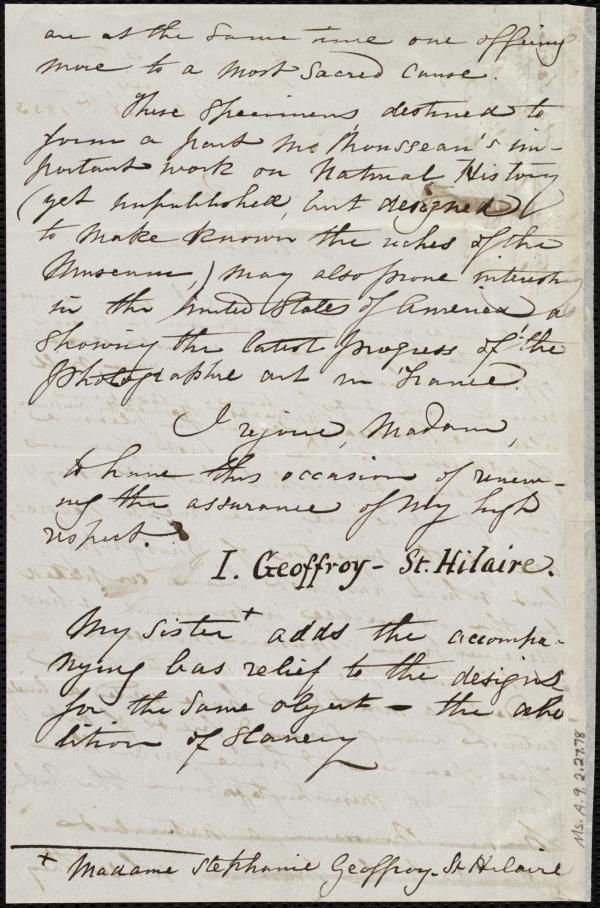 are at the same time one offering
more to a most sacred cause.
These specimens, destined to
form a part Mr. Rousseau's im-
portant work on Natural History
(yet unpublished, but designed
to make known the riches of the
Museum,) may also prove interesting
in the United States of America as
showing the latest progress of the
photographic art in France.
I rejoice, Madame,
to have this occasion of renew-
ing the assurance of my high
respect.
I. Geoffroy - St. Hilaire.
My sister + adds the accompa-
nying bas relief to the designs
for the same object - the abo
lition of slavery
+ Madame Stephanie Geoffroy-St Hilaire
Ms. A. 9. 2. 27. 78